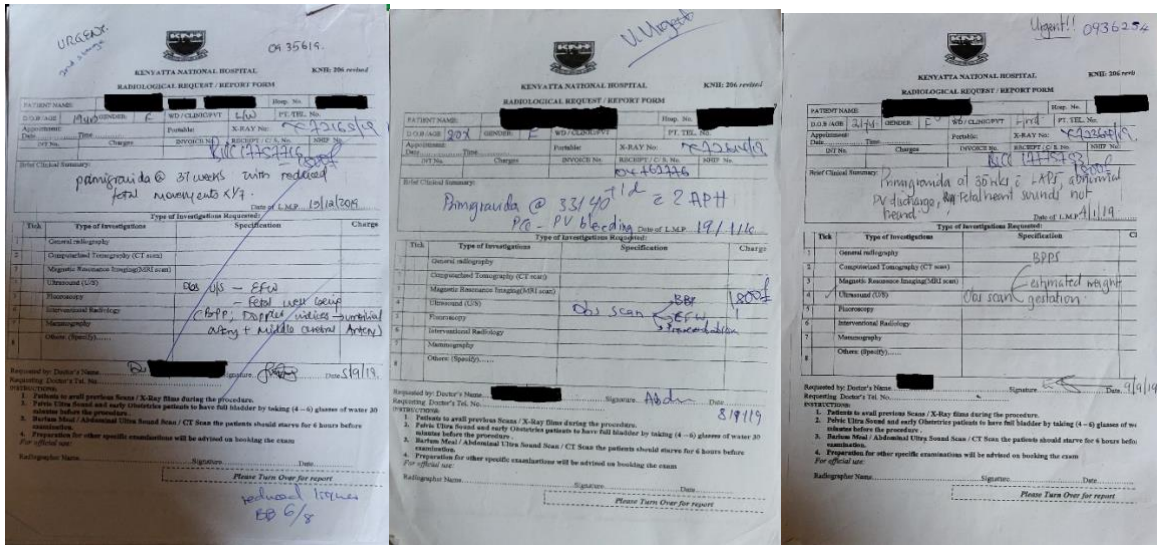 URGENT.
0935619.
KENYATTA NATIONAL HOSPITAL
KNH: 206 revised
RADIOLOGICAL REQUEST / REPORT FORM
PATIENT NAME: Hosp. No.
D.O.B/AGE GENDER: F WD / CLINIC/PVT LW PT. TEL. No.
Appointment: Portable: X-RAY No:
Date Time
INT No. Charges INVOICE No. RECEIPT / C. S. No. NHIF No.
Brief Clinical Summary:
primigravida @ 37 weeks with reduced
fetal movements
Date of L.M.P 19/12/2018
Type of Investigations Requested:
Tick Type of Investigations Specification Charge
1 General radiography
2 Computerized Tomography (CT scan)
3 Magnetic Resonance Imaging(MRI scan)
4 Ultrasound (U/S) Obs U/S - EFW
5 Fluoroscopy - Fetal well being
6 Interventional Radiology (BPP, Doppler indices - umbilical
7 Mammography artery + middle cerebral Artery)
8 Others: (Specify)......
Requested by: Doctor's Name Dr Signature Date 5/9/19.
Requesting Doctor's Tel. No.
INSTRUCTIONS:
1. Patients to avail previous Scans / X-Ray films during the procedure.
2. Pelvic Ultra Sound and early Obstetrics patients to have full bladder by taking (4 – 6) glasses of water 30
minutes before the procedure .
3. Barium Meal / Abdominal Ultra Sound Scan / CT Scan the patients should starve for 6 hours before
examination.
4. Preparation for other specific examinations will be advised on booking the exam
For official use:
Radiographer Name Signature Date
Please Turn Over for report
reduced liquor
6/8
V. Urgent
KENYATTA NATIONAL HOSPITAL
KNH: 206 revised
RADIOLOGICAL REQUEST / REPORT FORM
PATIENT NAME: Hosp. No.
D.O.B/AGE 20 GENDER: F WD / CLINIC/PVT PT. TEL. No.
Appointment: Portable: X-RAY No:
Date Time
INT No. Charges INVOICE No. RECEIPT / C. S. No. NHIF No.
Brief Clinical Summary:
Primigravida @ 33/40 + 1d 2 APH
PV bleeding Date of L.M.P
Type of Investigations Requested:
Tick Type of Investigations Specification Charge
General radiography
Computerized Tomography (CT scan)
Magnetic Resonance Imaging(MRI scan)
Ultrasound (U/S) Obs scan EFW
Fluoroscopy
Interventional Radiology
Mammography
8 Others: (Specify)......
Requested by: Doctor's Name Signature
Requesting Doctor's Tel. No. 8/9/19
INSTRUCTIONS:
1. Patients to avail previous Scans / X-Ray films during the procedure.
2. Pelvic Ultra Sound and early Obstetrics patients to have full bladder by taking (4 – 6) glasses of water 30
minutes before the procedure .
3. Barium Meal / Abdominal Ultra Sound Scan / CT Scan the patients should starve for 6 hours before
examination.
4. Preparation for other specific examinations will be advised on booking the exam
For official use:
Radiographer Name Signature Date
Please Turn Over for report
Urgent!! 0936254
KENYATTA NATIONAL HOSPITAL
KNH: 206
RADIOLOGICAL REQUEST / REPORT FORM
PATIENT NAME: Hosp. No.
D.O.B/AGE GENDER: F WD / CLINIC/PVT PT. TEL. No.
Appointment: Portable: X-RAY No:
Date Time
INT No. Charges INVOICE No. RECEIPT / C. S. No. NHIF No.
Brief Clinical Summary:
Primigravida at 35 wks LAPS, abnormal
PV discharge, fetal heart sounds not
heard. Date of L.M.P 4/1/19
Type of Investigations Requested:
Tick Type of Investigations Specification
1 General radiography BPPS
2 Computerized Tomography (CT scan)
3 Magnetic Resonance Imaging(MRI scan) estimated weight
4 Ultrasound (U/S) Obs scan gestation
5 Fluoroscopy
6 Interventional Radiology
7 Mammography
8 Others: (Specify)......
Requested by: Doctor's Name Signature Date 9/9/19
Requesting Doctor's Tel. No.
INSTRUCTIONS:
1. Patients to avail previous Scans / X-Ray films during the procedure.
2. Pelvic Ultra Sound and early Obstetrics patients to have full bladder by taking (4 – 6) glasses of
minutes before the procedure .
3. Barium Meal / Abdominal Ultra Sound Scan / CT Scan the patients should starve for 6 hours
examination.
4. Preparation for other specific examinations will be advised on booking the exam
For official use:
Radiographer Name Signature Date
Please Turn Over for report